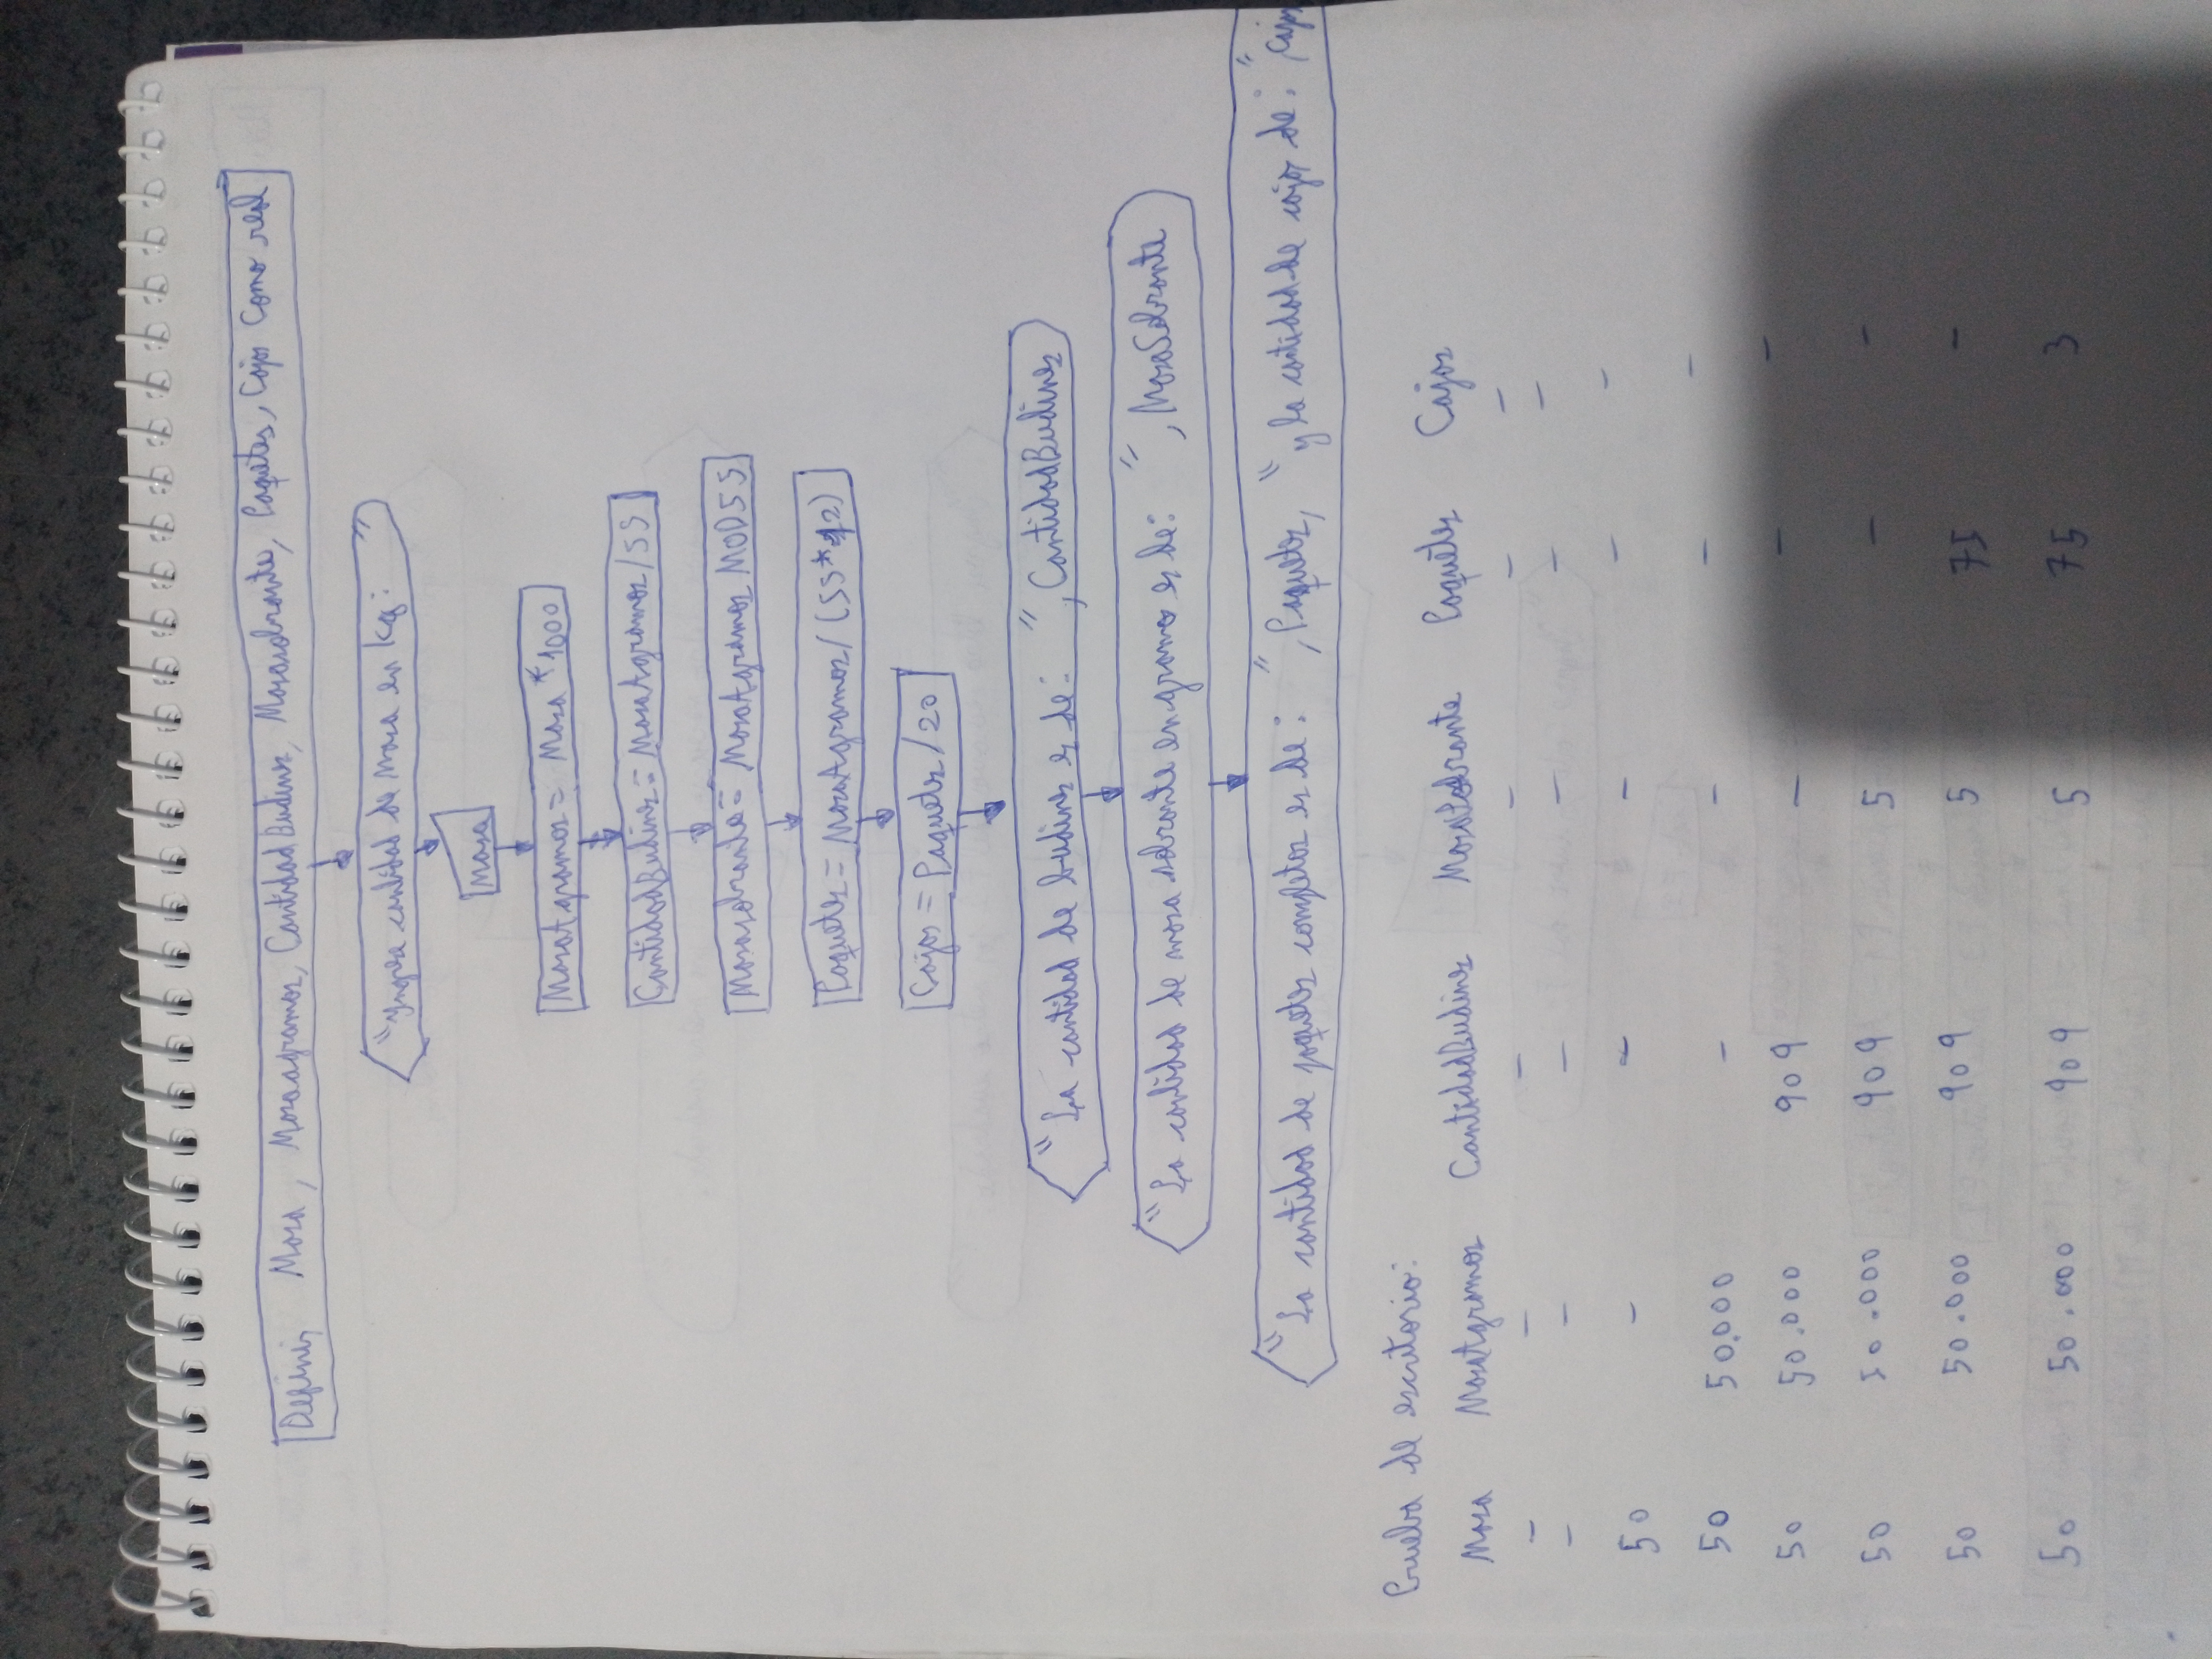 Definir Masa, Masaagramos, CantidadBudines, Masasobrante, Paquetes, Cajas Como real
"Ingrese cantidad de masa en kg: "
Masa
MasaAgramos = Masa * 1000
CantidadBudines = MasaAgramos / 55
Masasobrante = MasaAgramos MOD 55
Paquetes = MasaAgramos / (55*12)
Cajas = Paquetes / 20
"La cantidad de budines es de: ", CantidadBudines
"La cantidad de masa sobrante en gramo es de: ", MasaSobrante
"La cantidad de paquetes completos es de: ", Paquetes, "y la cantidad de cajas de: ", Cajas
Prueba de escritorio:
Masa MasaAgramos CantidadBudines MasaSobrante Paquetes Cajas
- - - - - -
- - - - - -
50 - - - - -
50 50.000 - - - -
50 50.000 909 - - -
50 50.000 909 5 - -
50 50.000 909 5 75 -
50 50.000 909 5 75 3